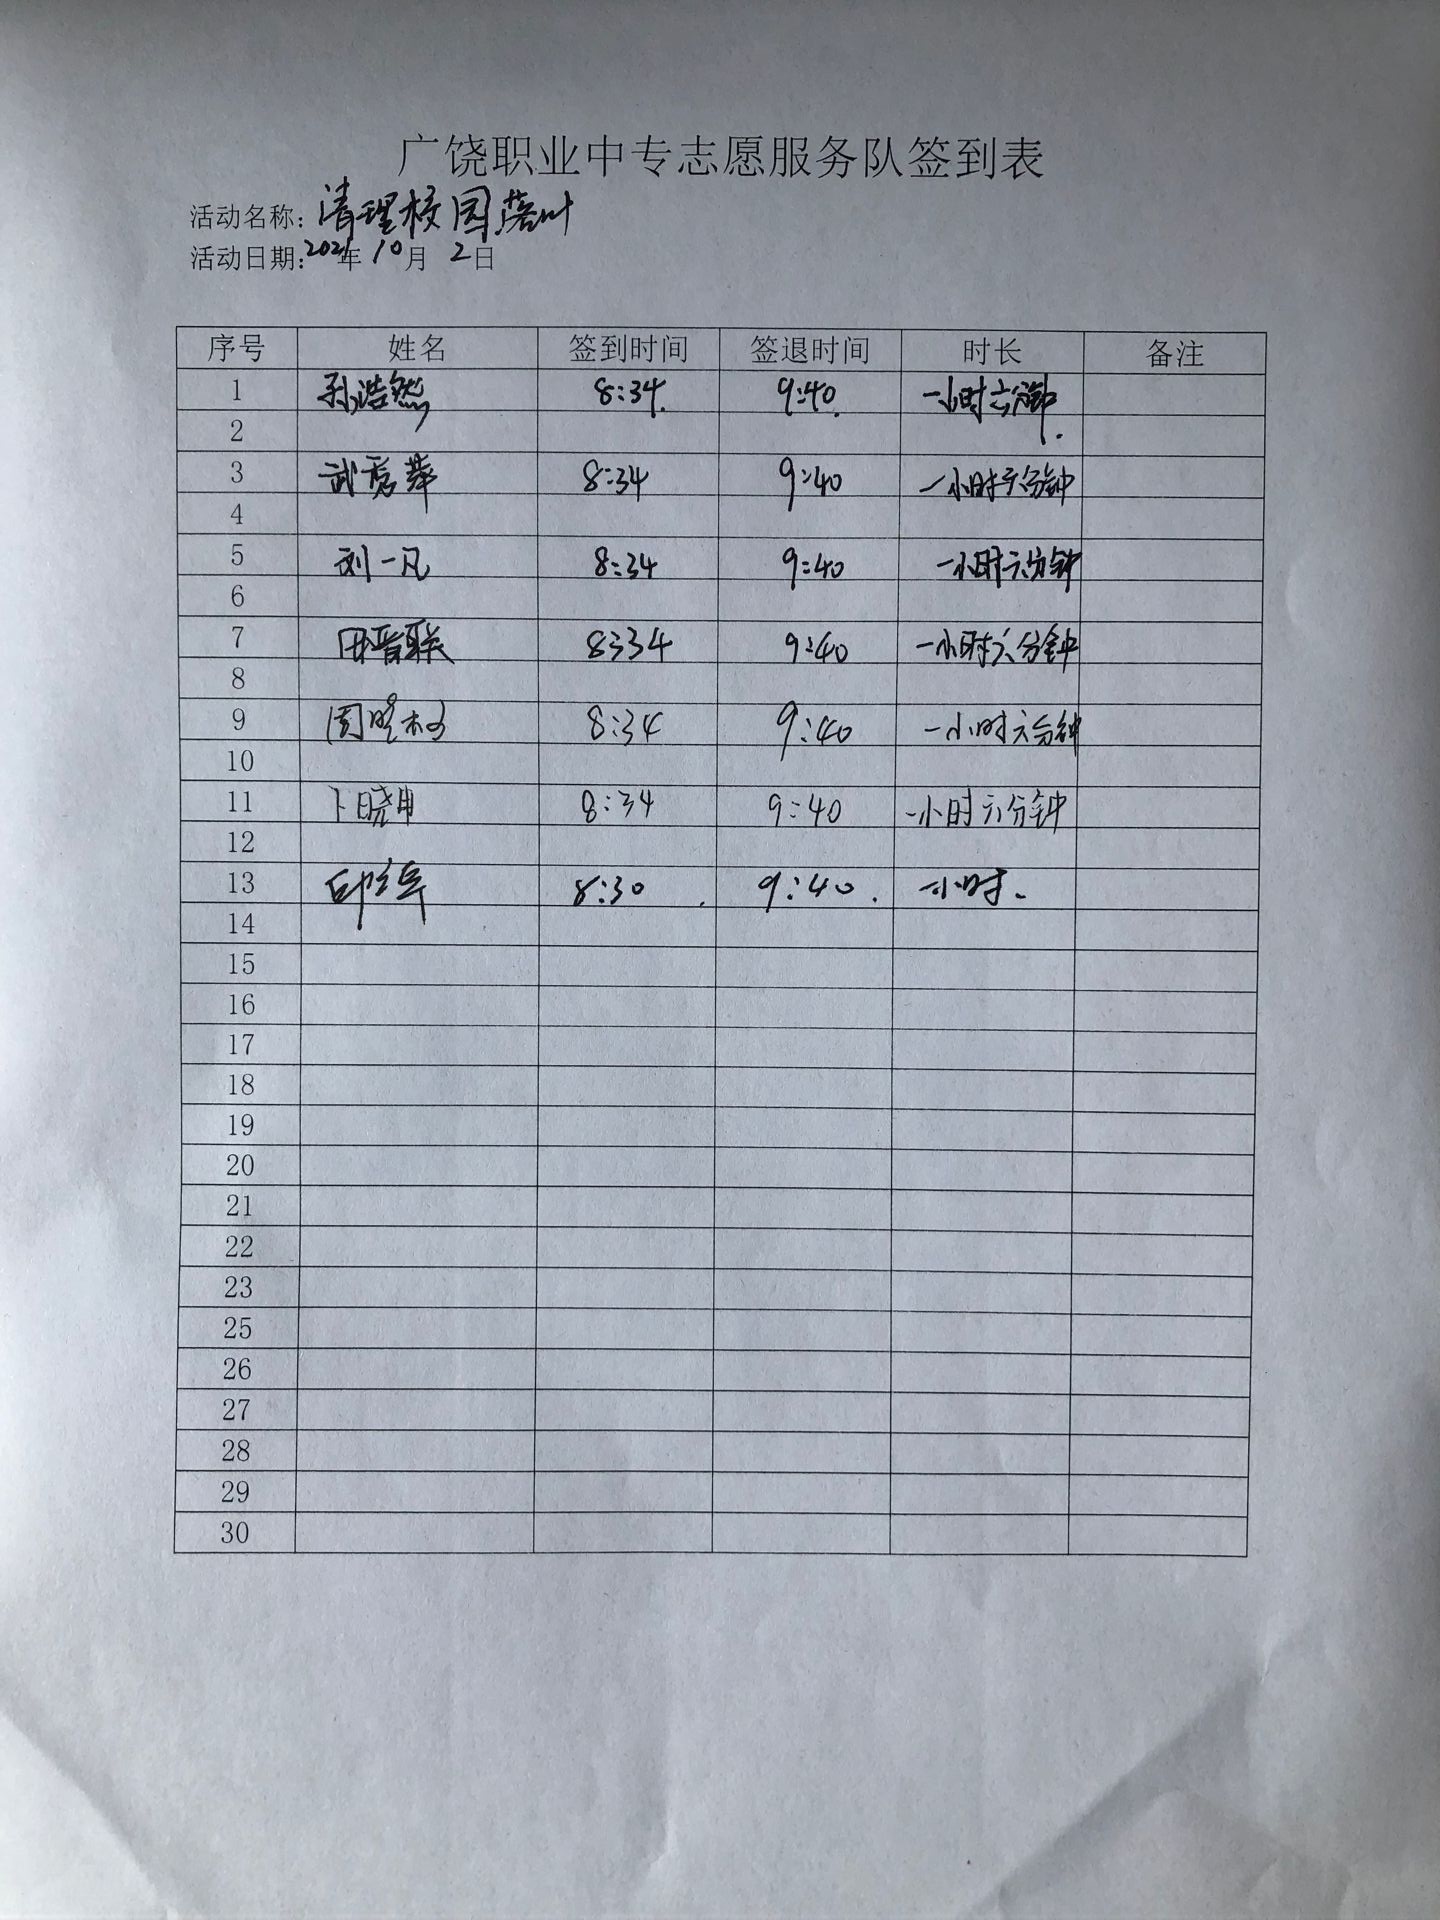 广饶职业中专志愿服务队签到表
活动名称：清理校园落叶
活动日期：2021年 10月 2日
序号 姓名 签到时间 签退时间 时长 备注
1 孙浩然 8:34. 9:40. 一小时六分钟.
2
3 武秀萍 8:34 9:40 一小时六分钟
4
5 刘一凡 8:34 9:40 一小时六分钟
6
7 田晋联 8:34 9:40 一小时六分钟
8
9 周 8:34 9:40 一小时六分钟
10
11 卜晓申 8:34 9:40 一小时六分钟
12
13 8:30. 9:40. 一小时.
14
15
16
17
18
19
20
21
22
23
25
26
27
28
29
30